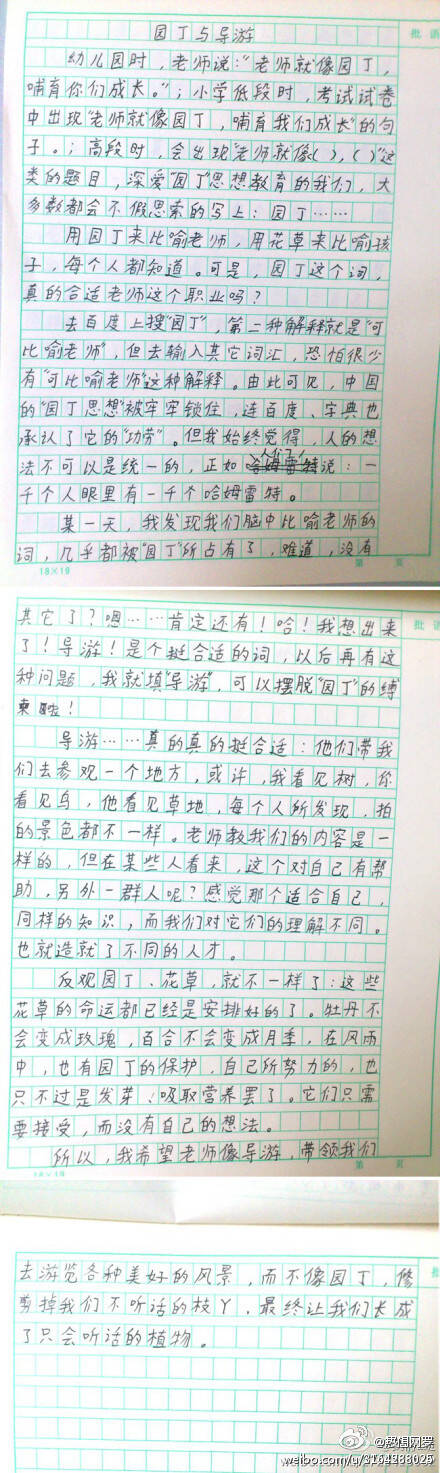 批语
园丁与导游
幼儿园时，老师说：“老师就像园丁，
哺育你们成长。”；小学低段时，考试试卷
中出现“老师就像园丁，哺育我们成长”的句
子。；高段时，会出现“老师就像( )，( )”这
类的题目，深爱“园丁”思想教育的我们，大
多数都会不假思索的写上：园丁……
用园丁来比喻老师，用花草来比喻孩
子，每个人都知道。可是，园丁这个词，
真的合适老师这个职业吗？
去百度上搜“园丁”，第二种解释就是“可
比喻老师”，但去输入其它词汇，恐怕很少
有“可比喻老师”这种解释。由此可见，中国
的“园丁思想”被牢牢锁住，连百度、字典也
承认了它的“功劳”。但我始终觉得，人的想
法不可以是统一的，正如人们说：一
千个人眼里有一千个哈姆雷特。
某一天，我发现我们脑中比喻老师的
词，几乎都被“园丁”所占有了，难道，没有
18×19 第 页
批语
其它了？嗯……肯定还有！哈！我想出来
了！导游！是个挺合适的词，以后再有这
种问题，我就填“导游”，可以摆脱“园丁”的缚
束啦！
导游……真的真的挺合适：他们带我
们去参观一个地方，或许，我看见树，你
看见鸟，他看见草地，每个人所发现，拍
的景色都不一样。老师教我们的内容是一
样的，但在某些人看来，这个对自己有帮
助，另外一群人呢？感觉那个适合自己，
同样的知识，而我们对它们的理解不同。
也就造就了不同的人才。
反观园丁、花草，就不一样了：这些
花草的命运都已经是安排好的了。牡丹不
会变成玫瑰，百合不会变成月季，在风雨
中，也有园丁的保护，自己所努力的，也
只不过是发芽、吸取营养罢了。它们只需
要接受，而没有自己的想法。
所以，我希望老师像导游，带领我们
18×19 第 页
批
去游览各种美好的风景，而不像园丁，修
剪掉我们不听话的枝丫，最终让我们长成
了只会听话的植物。
weibo.com/u/3164288025